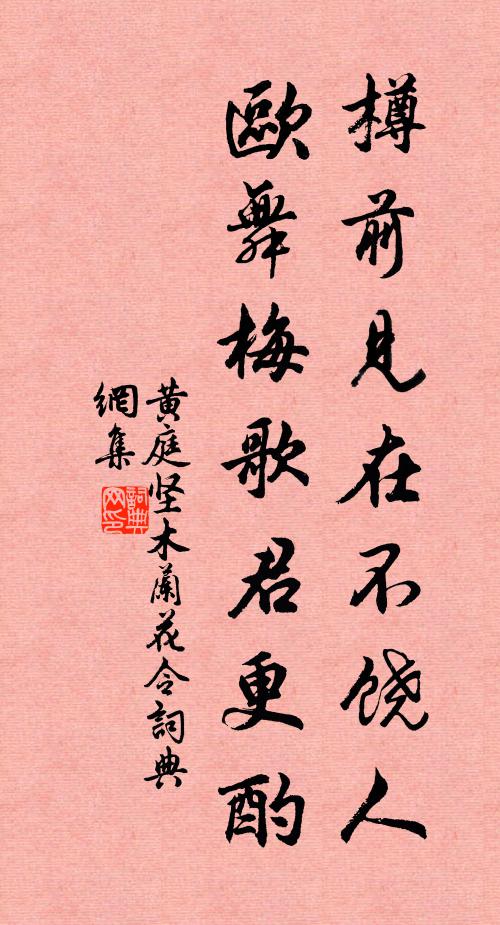 樽前見在不饶人
歐舞梅歌君更酌
黄庭坚木蘭花令詞典
網集
詞典
网印